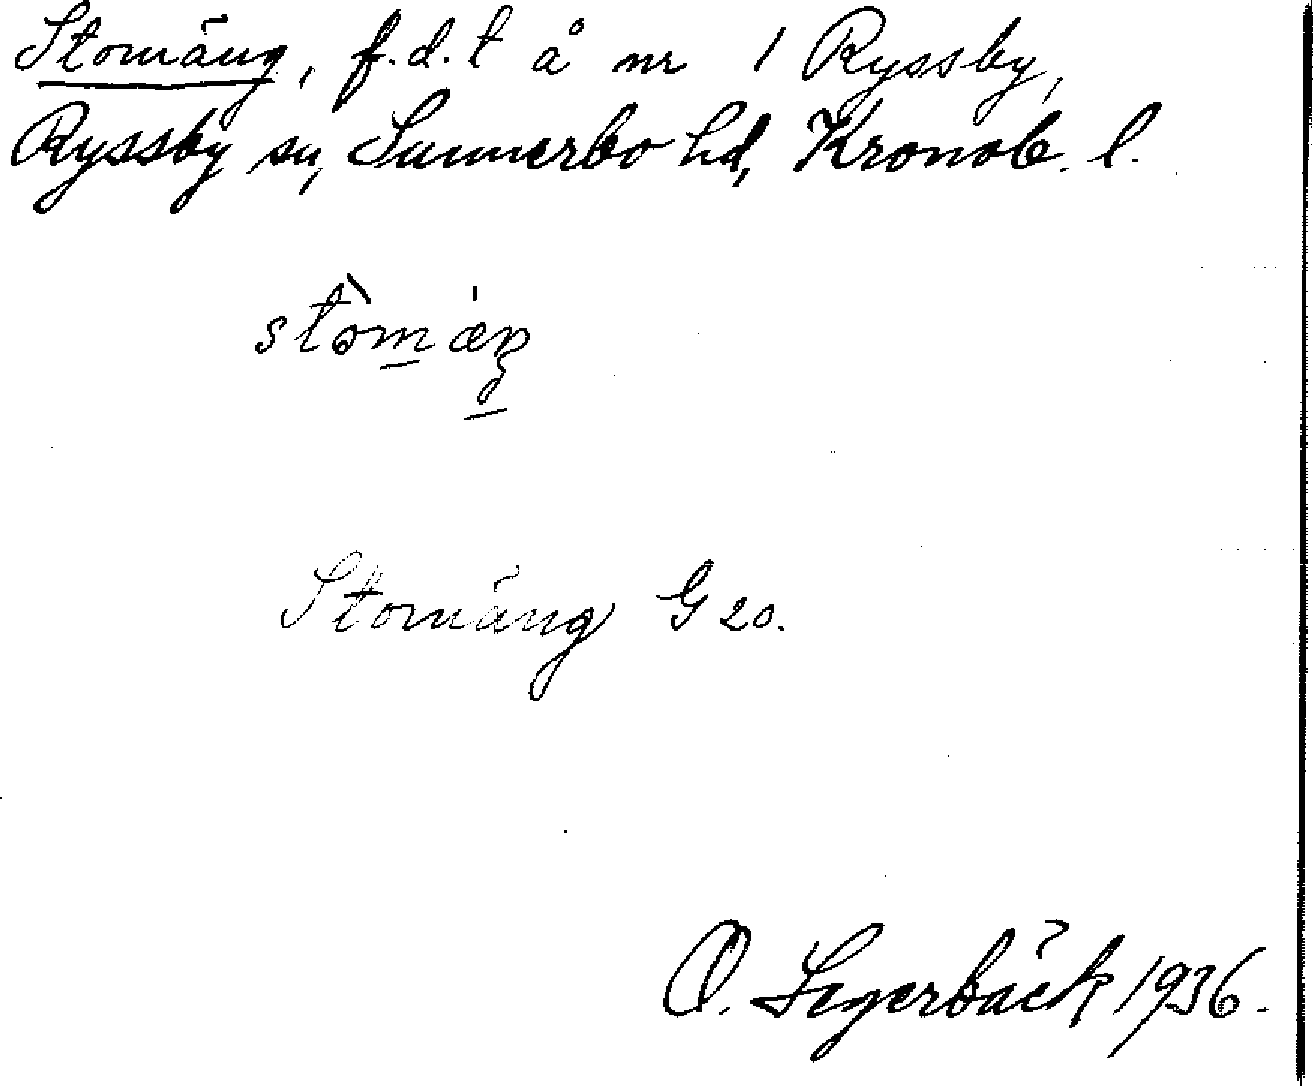 Stomäng, f.d. t å nr 1 Ryssby,
Ryssby sn, Sunnerbo hd, Kronob. l.
stòmæŋ
Stomäng G 20.
O. Segerbäck 1936.